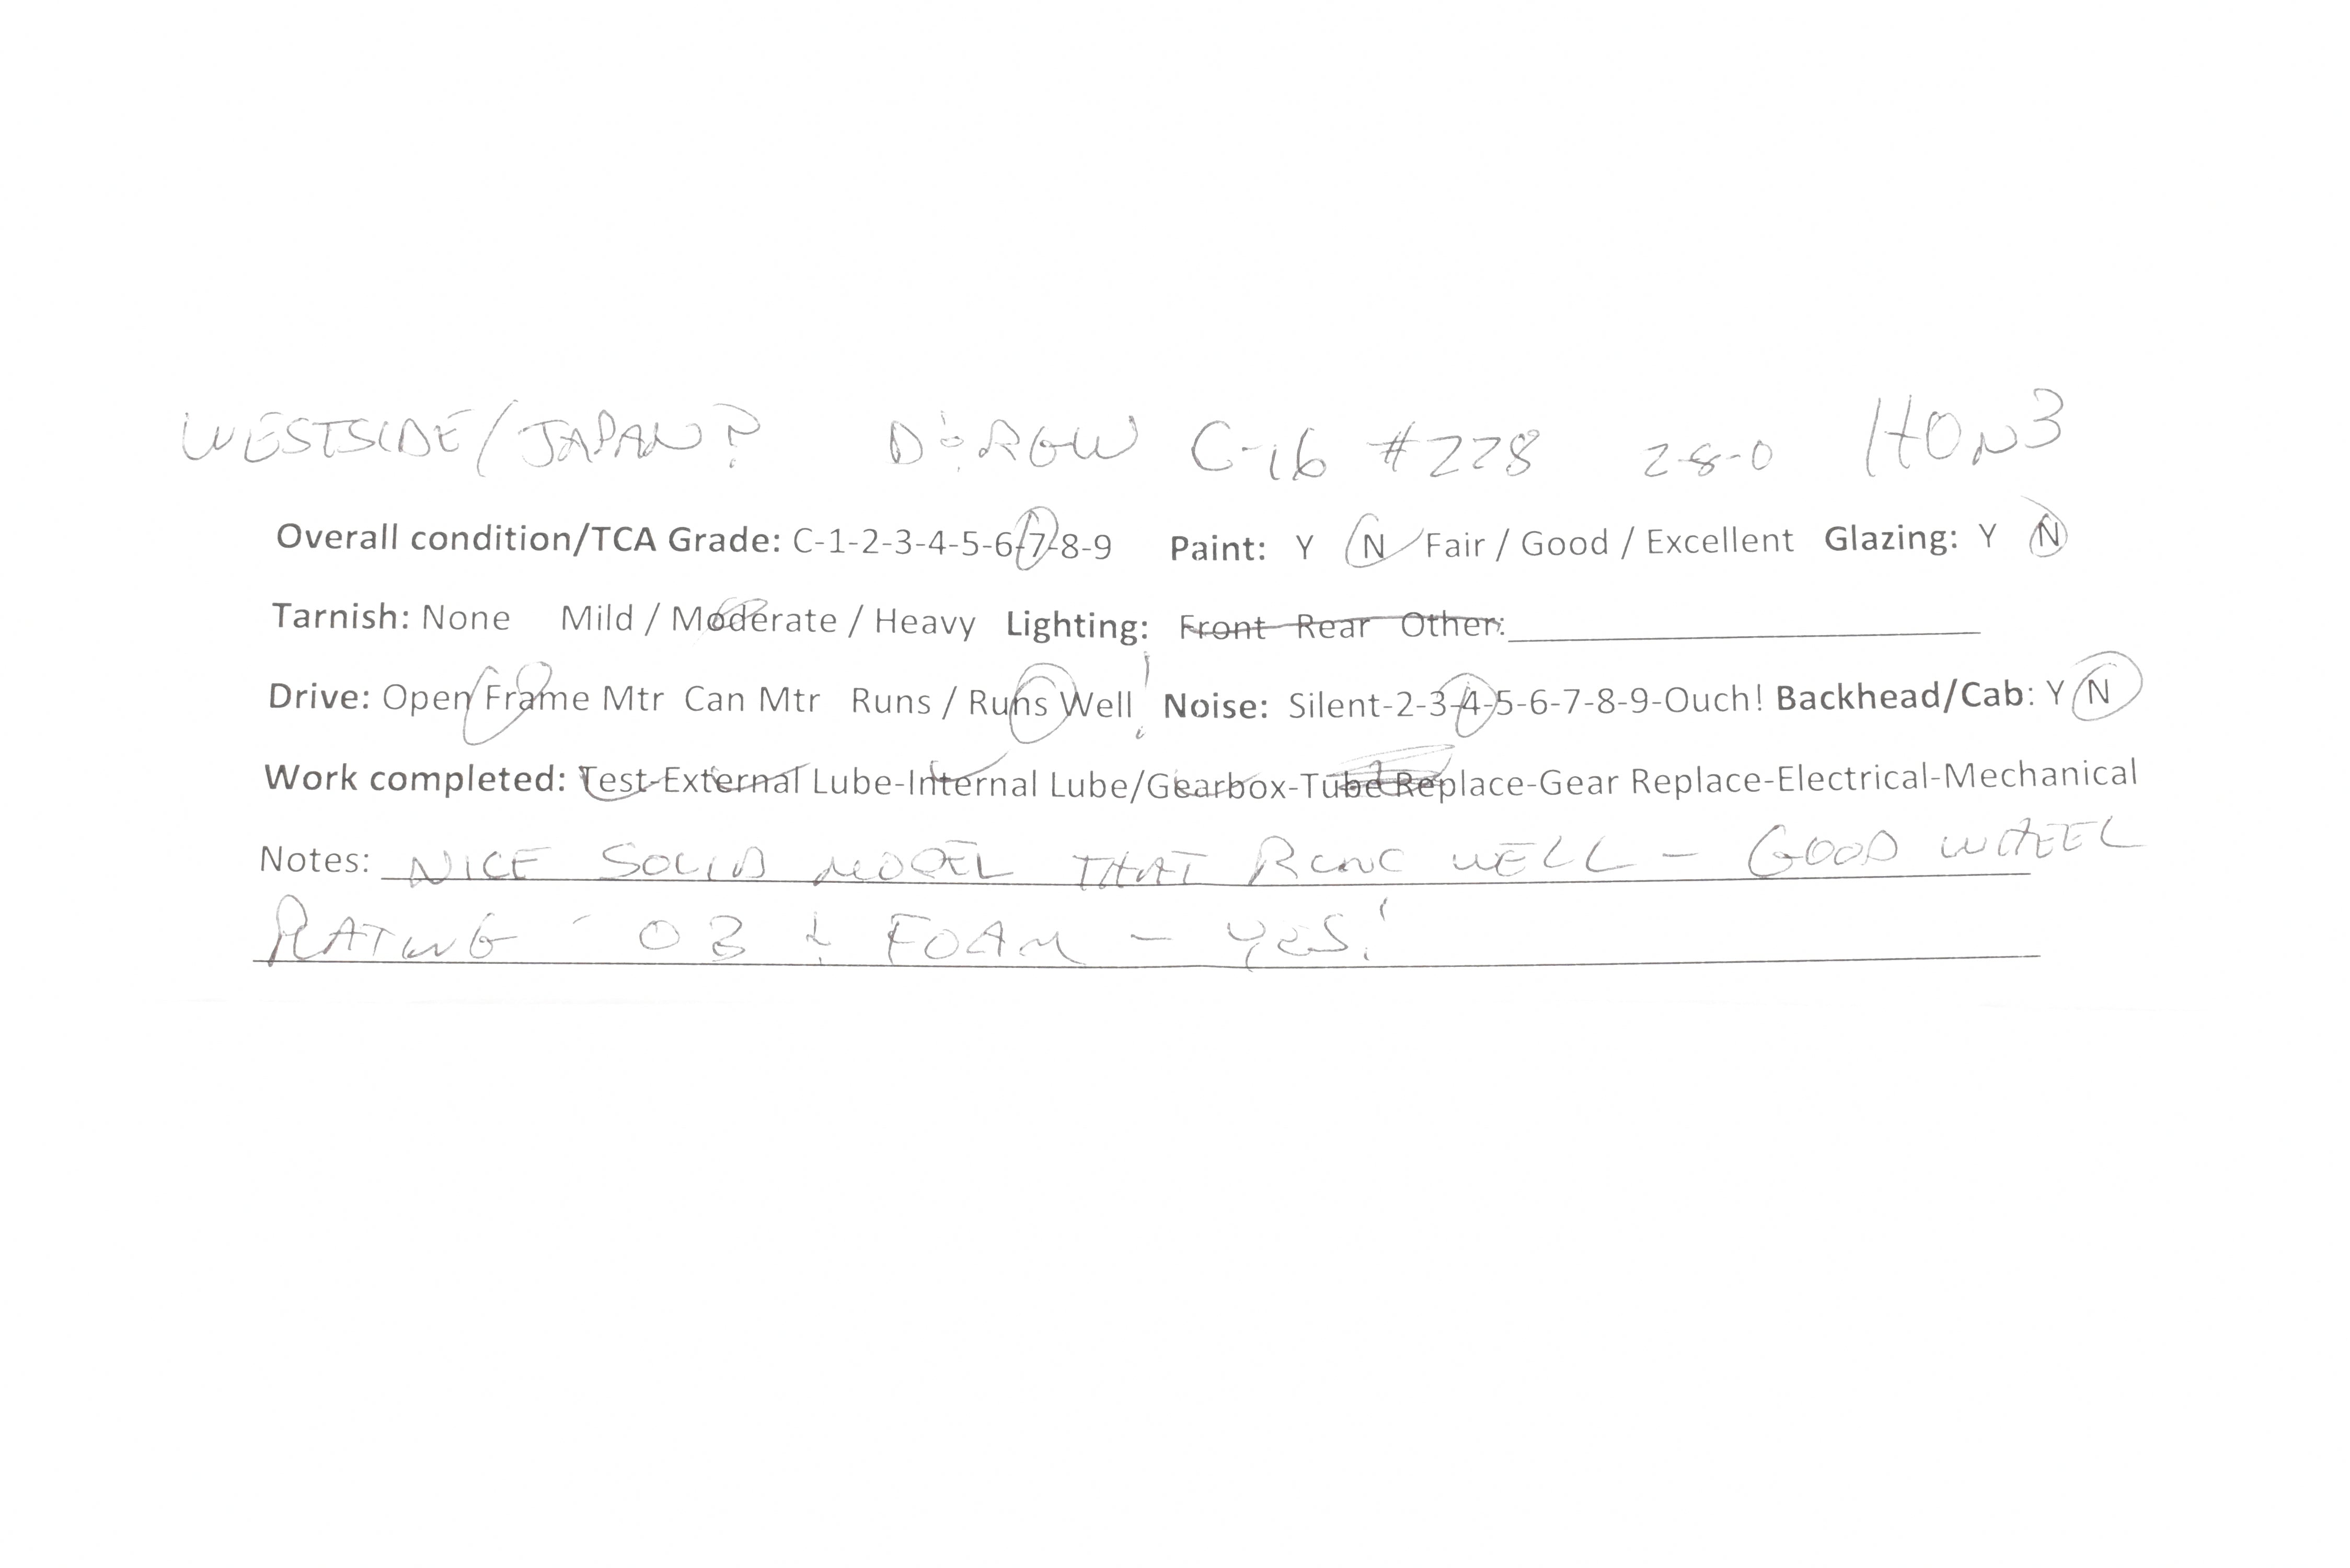 WESTSIDE/JAPAN? D&RGW C-16 #228 2-8-0 HOn3
Overall condition/TCA Grade: C-1-2-3-4-5-6-7-8-9 Paint: Y N Fair / Good / Excellent Glazing: Y N
Tarnish: None Mild / Moderate / Heavy Lighting: Front Rear Other:
Drive: Open Frame Mtr Can Mtr Runs / Runs Well! Noise: Silent-2-3-4-5-6-7-8-9-Ouch! Backhead/Cab: Y N
Work completed: Test-External Lube-Internal Lube/Gearbox-Tube Replace-Gear Replace-Electrical-Mechanical
Notes: NICE SOLID MODEL THAT RUNS WELL - GOOD WHEEL
PLATING - OB & FOAM - YES!